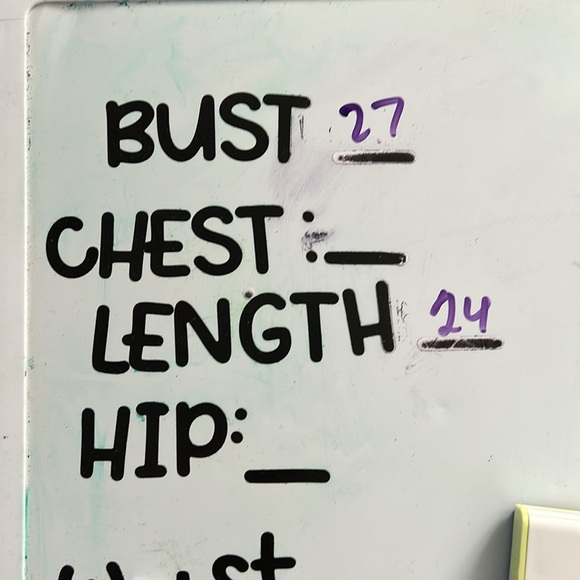 BUST 27
CHEST :
LENGTH 24
HIP: